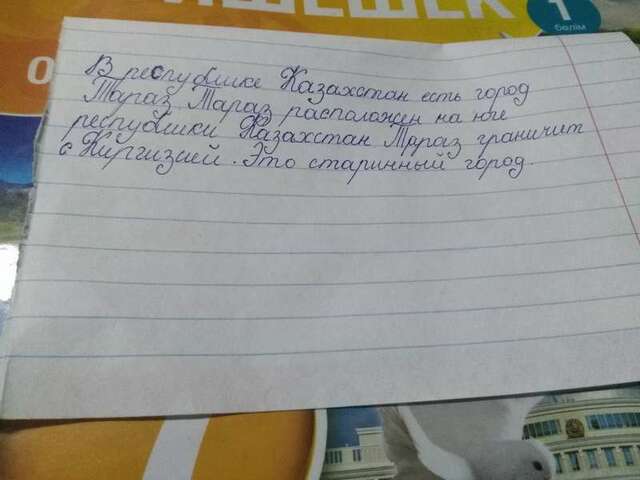 1
бөлім
В республике Казахстан есть город
Тараз Тараз расположен на юге
республики Казахстан Тараз граничит
с Киргизией. Это старинный город.